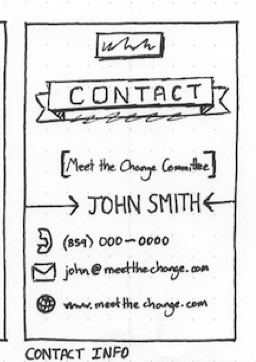 CONTACT
[Meet the Change Committee]
JOHN SMITH
(859) 000-0000
john@meetthechange.com
www.meetthechange.com
CONTACT INFO